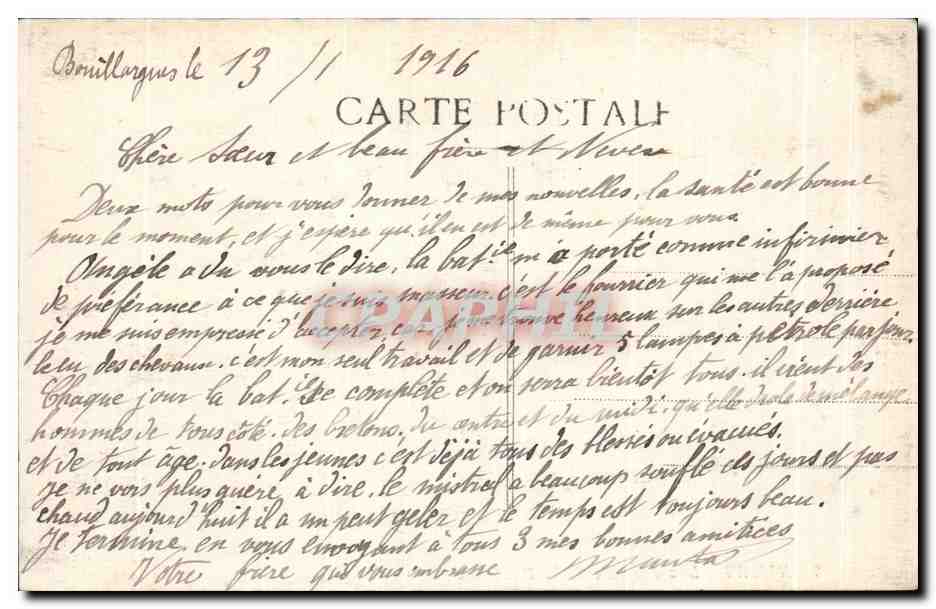 Bouillargues le 13/1 1916
CARTE POSTALE
Chère Sœur et beau frère et Neveu
Deux mots pour vous donner de mes nouvelles, la santé est bonne
pour le moment, et j'espère qu'il en est de même pour vous
Angèle a du vous le dire, la bat.ie m'a porté comme infirmier
de préférance à ce que je suis masseur. c'est le fourrier qui me l'a proposé
je me suis empressé d'accepter, car je me trouve heureux sur les autres derrière
le cu des chevaux. c'est mon seul travail et de garnir 5 lampes à pétrole par jour.
Chaque jour la bat.ie se complète et on serra bientôt tous. il vient des
hommes de tous côté. des bretons, du centre et du midi. qu'elle drole de mélange
et de tout age. dans les jeunes c'est déjà tous des blessés ou évacués.
Je ne vois plus guère à dire. le mistral a beaucoup soufflé ces jours et pas
chaud aujourd'huit il a un peut geler et le temps est toujours beau.
Je termine en vous envoyant à tous 3 mes bonnes amitiées
Votre frère qui vous embrasse
CPAPHIL